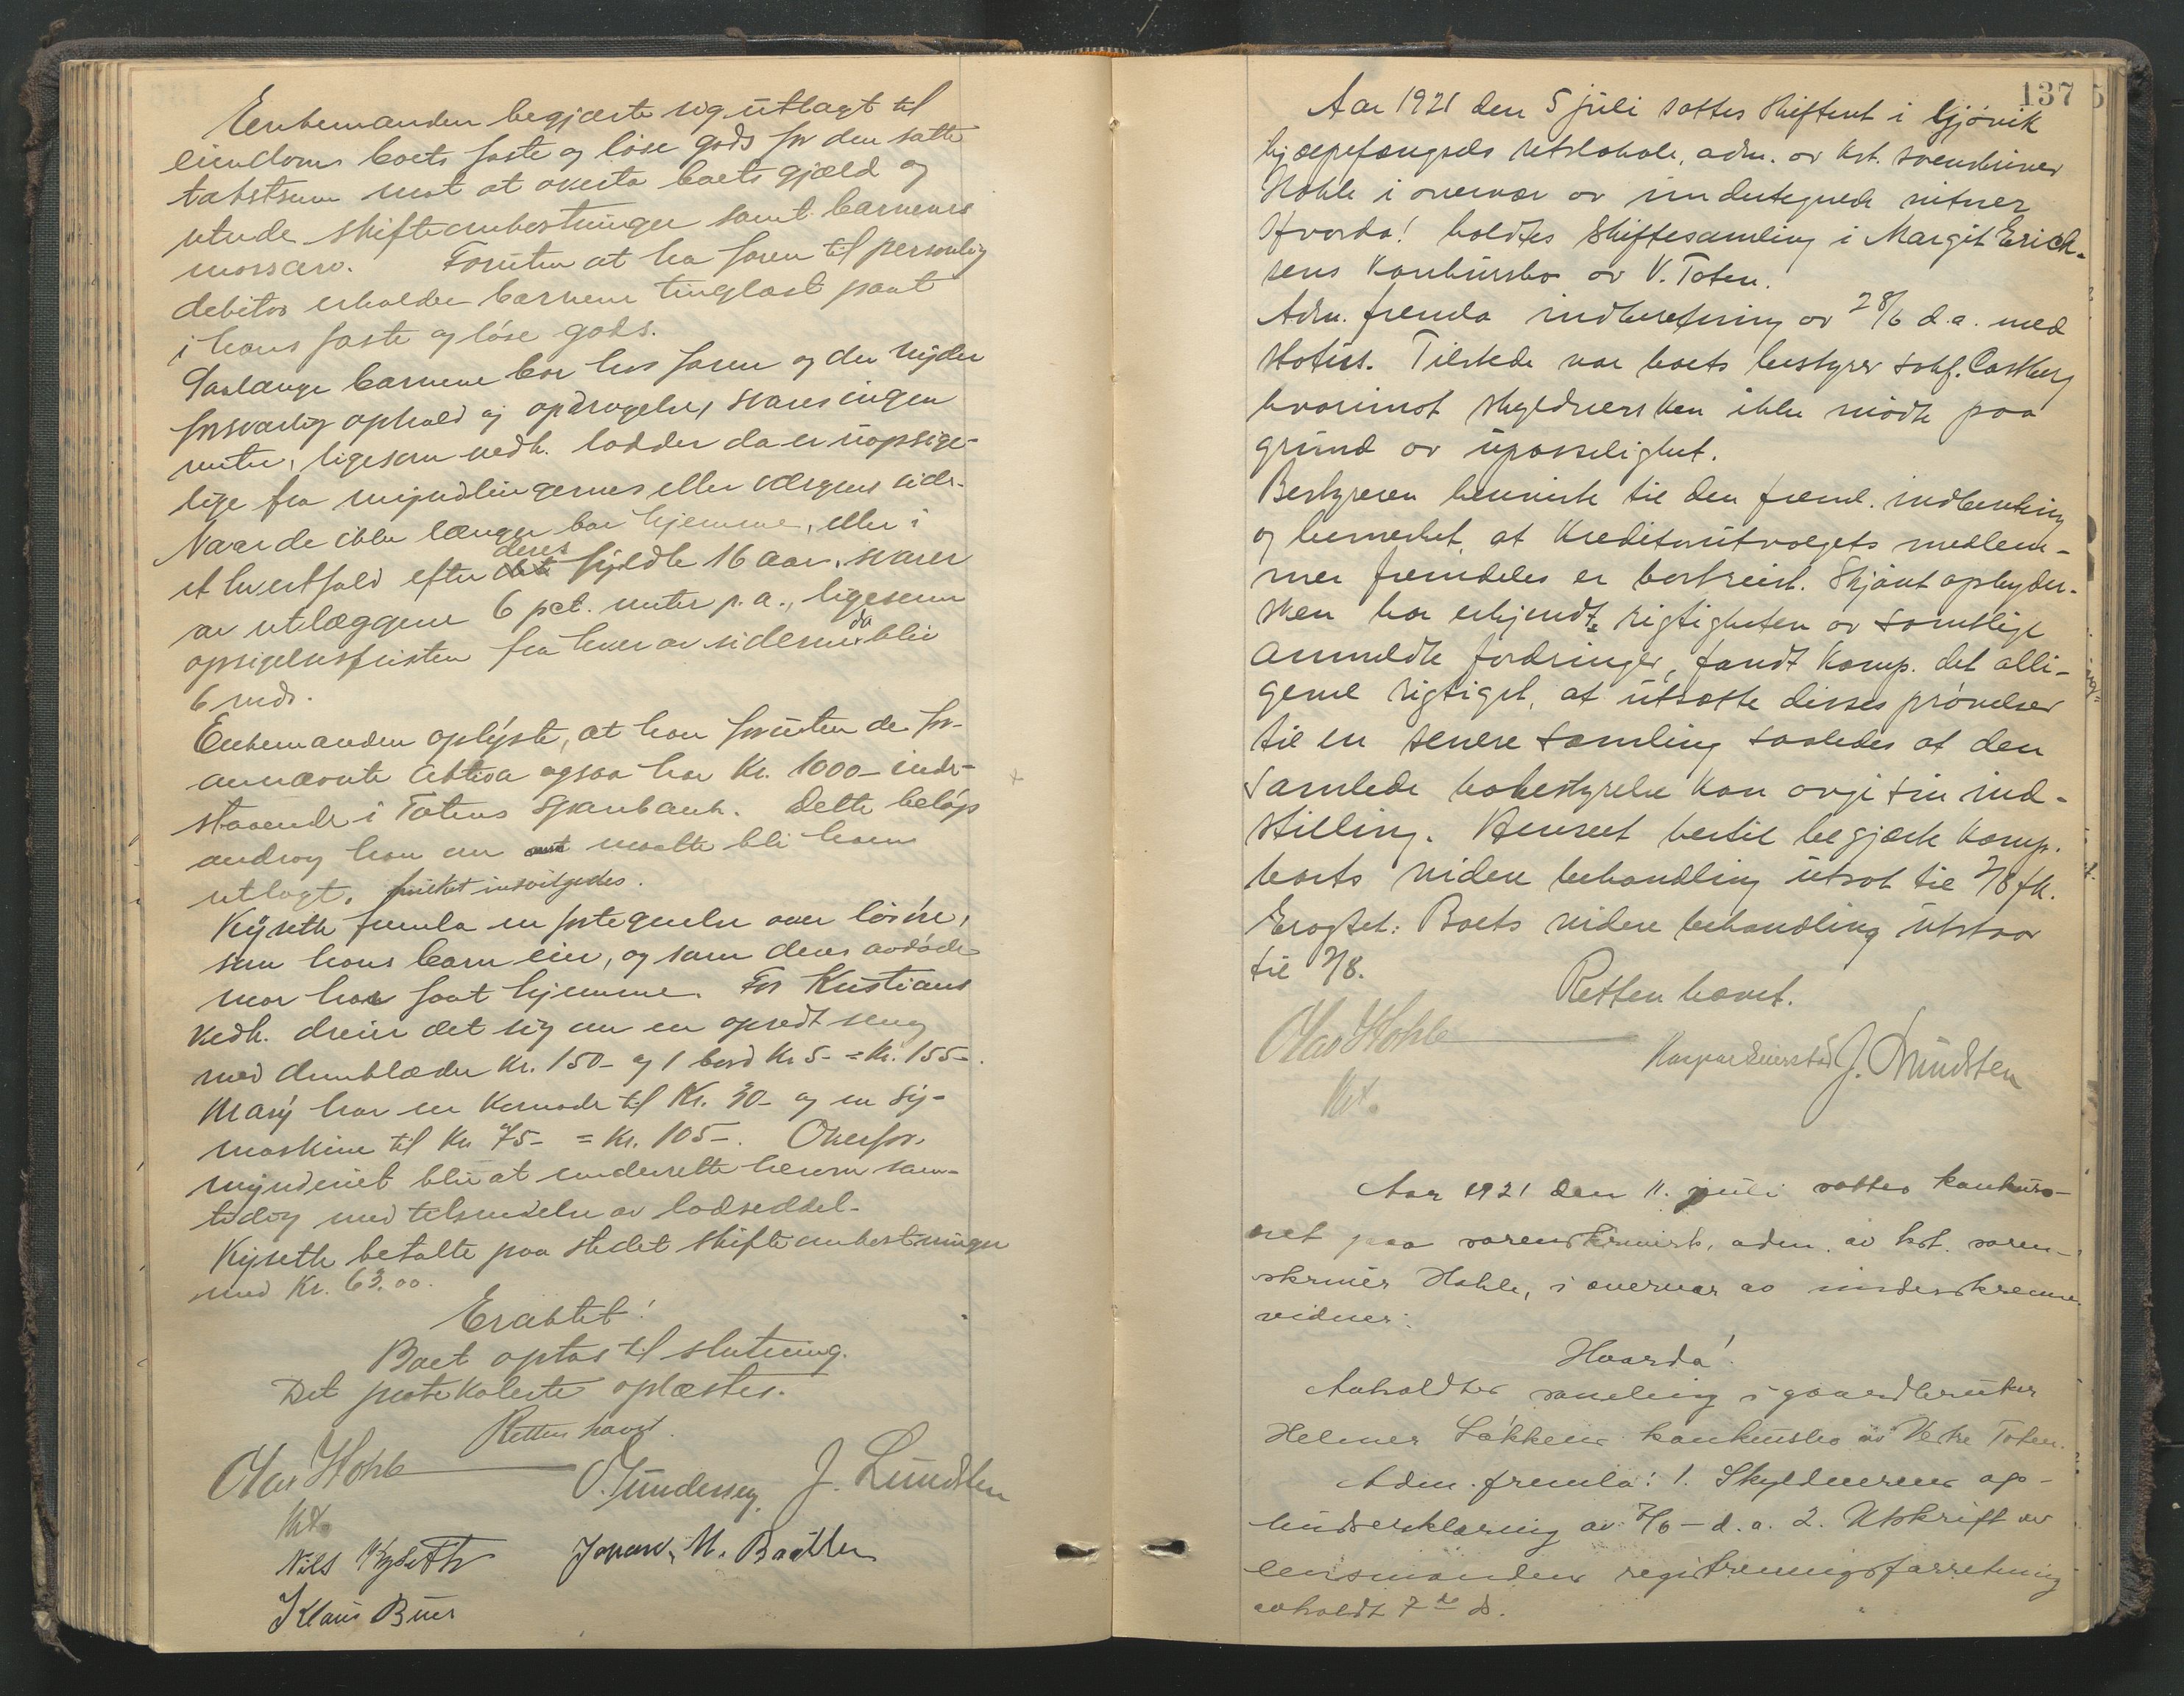 Enkemanden begjærte sig utlagt til
eiendom boets faste og løse gods for den satte
takstsum mot at overta boets gjæld og
utrede skifteomkostninger samt barnenes
morsarv. Foruten at ha faren til personlig
debitor erholder barnene tinglæst pant
i hans faste og løse gods.
Saalænge barnene bor hos faren og der nyder
forsvarlig ophold og opdragelse, svares ingen
renter, ligesom vedk. lodder da er uopsige-
lige fra myndlingernes eller værgens side.
Naar de ikke længer bor hjemme, eller i
et hvertfald efter deres fyldte 16 aar, svarer
av utlæggene 6 pct. renter p.a., ligesom
opsigelsesfristen fra hver av siderne da blir
6 mdr.
Enkemanden oplyste, at han foruten de for-
annævnte aktiva ogsaa har Kr. 1000– inde-
staaende i Totens Sparebank. Dette beløp
androg han om maatte bli ham
utlagt, hvilket indvilgedes.
Kyseth fremla en fortegnelse over løsøre,
som hans barn eier, og som deres avdøde
mor har faat hjemme. For Kristians
vedk. dreier det sig om en opredt seng
med dunklæder Kr. 150– og 1 bord Kr 5– = Kr. 155–.
Mary har en komode til Kr. 30– og en sy-
maskine til Kr 75– = Kr. 105–. Overfor-
mynderiet blir at underrette herom sam-
tidig med tilsendelse av lodseddel.
Kyseth betalte paa stedet skifteomkostninger
med Kr. 63.00.
Eragtet!
Boet optas til slutning.
Det protokolerte oplæstes.
Retten hævet.
Olav Hohle O. Gundersen J. Lundsten
kst.
Nils Kyseth Johan M. Braathen
Klaus Buer
137
Aar 1921 den 5 juli sattes skifteret i Gjøvik
hjælpefængsels retslokale, adm. av kst. sorenskriver
Hohle i overvær av undertegnede vitner
Hvorda! holdtes skiftesamling i Margit Erick-
sens konkursbo av V. Toten.
Adm. fremla indberetning av 28/6 d.a. med
status. Tilstede var boets bestyrer sakf. Castberg
hvorimot skyldnersken ikke mødte paa
grund av upasselighet.
Bestyreren henviste til den freml. indberetning
og bemerket, at kreditorutvalgets medlem-
mer fremdeles er bortreist. Skjønt opbyder-
sken har erkjendt rigtigheten av samtlige
anmeldte fordringer, fandt komp. det alli-
gevel rigtigst, at utsætte disses prøvelser
til en senere samling saaledes at den
samlede bobestyrelse kan avgi sin ind-
stilling. Henseet hertil begjærte komp.
boets videre behandling utsat til 2/8 fk.
Eragtet: Boets videre behandling utstaar
til 2/8.
Retten hævet.
Olav Hohle Kaspar Evenstad J. Lundsten
kst.
Aar 1921 den 11. juli sattes konkurs-
ret paa sorenskriverk. adm. av kst. soren-
skriver Hohle, i overvær av underskrevne
vidner:
Hvorda!
Avholdtes samling i gaardbruker
Helmer Løkkens konkursbo av Vestre Toten.
Adm. fremla: 1. Skyldnerens op-
budserklæring av 2/6 – d.a. 2. Utskrift av
lensmandens registreringsforretning
avholdt 7de ds.